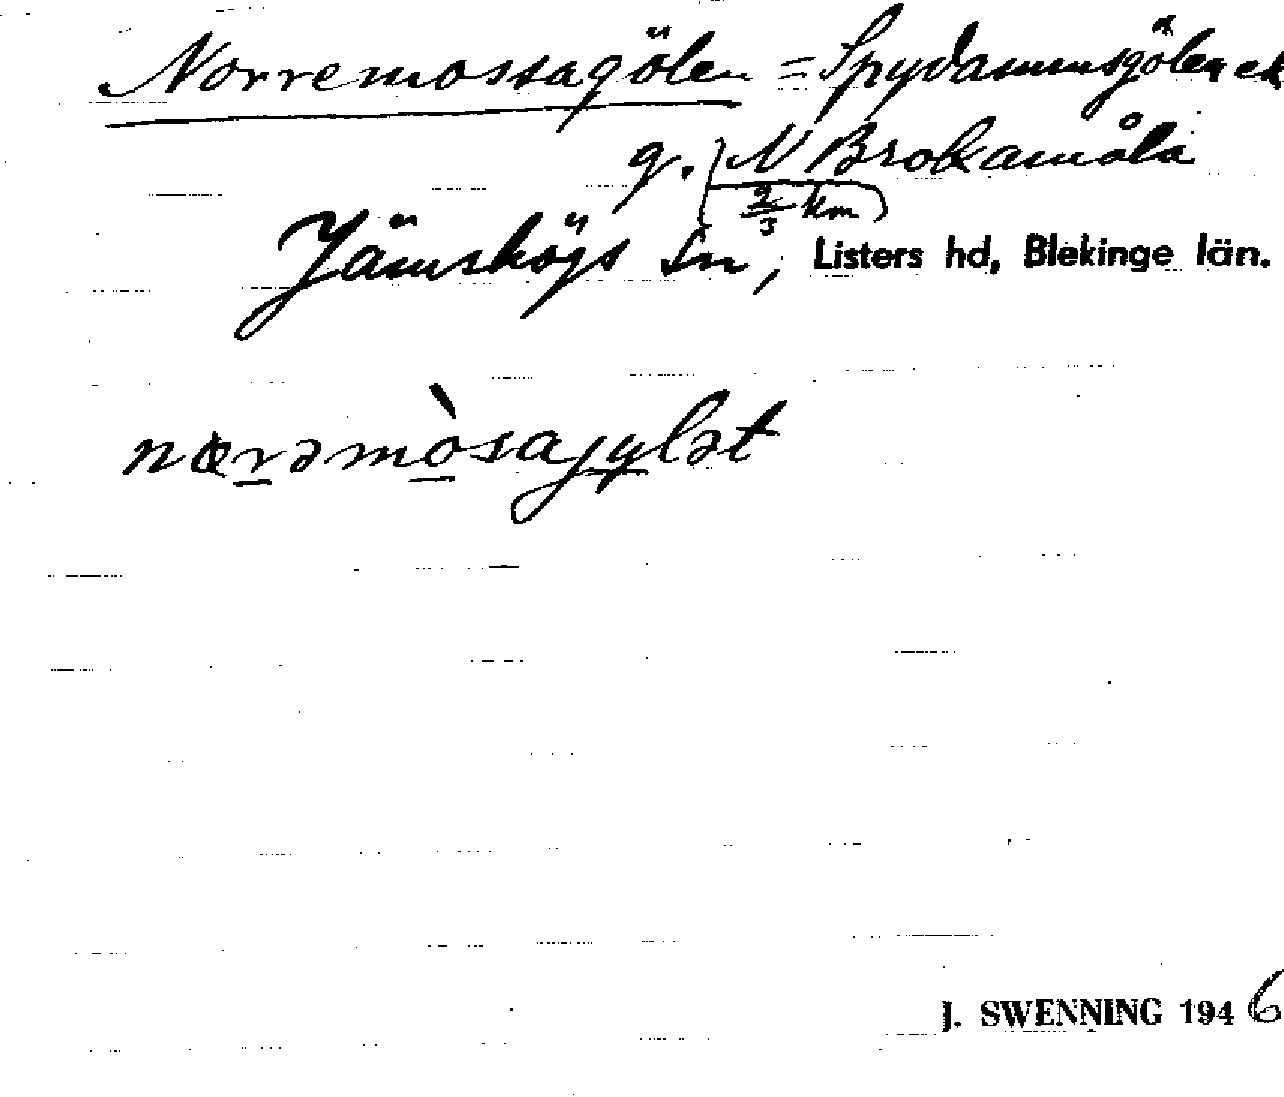 Norremossagölen = Spydammsgölen ek
g. N Brokamåla
2/3 km
Jämshögs sn, Listers hd, Blekinge län.
nɶrəmòsajylət
J. SWENNING 1946